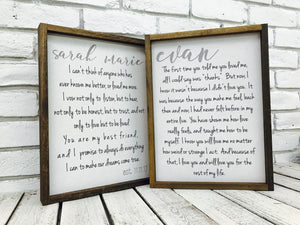 sarah marie
I can't think of anyone who has
ever known me better, or loved me more.
I vow not only to listen, but to hear,
not only to be honest, but to trust, and not
only to love but to be loved.
You are my best friend,
and I promise to always do everything
I can to make our dreams come true.
EST.
evan
The first time you told me you loved me,
all I could say was "thanks". But now, I
know it wasn't because I didn't love you. It
was because the way you make me feel, back
then and now, I had never felt before in my
entire life. You have shown me how love
really feels, and taught me how to be
myself. I know you will love me no matter
how weird or strange I act. And because of
that, I love you and will love you for the
rest of my life.